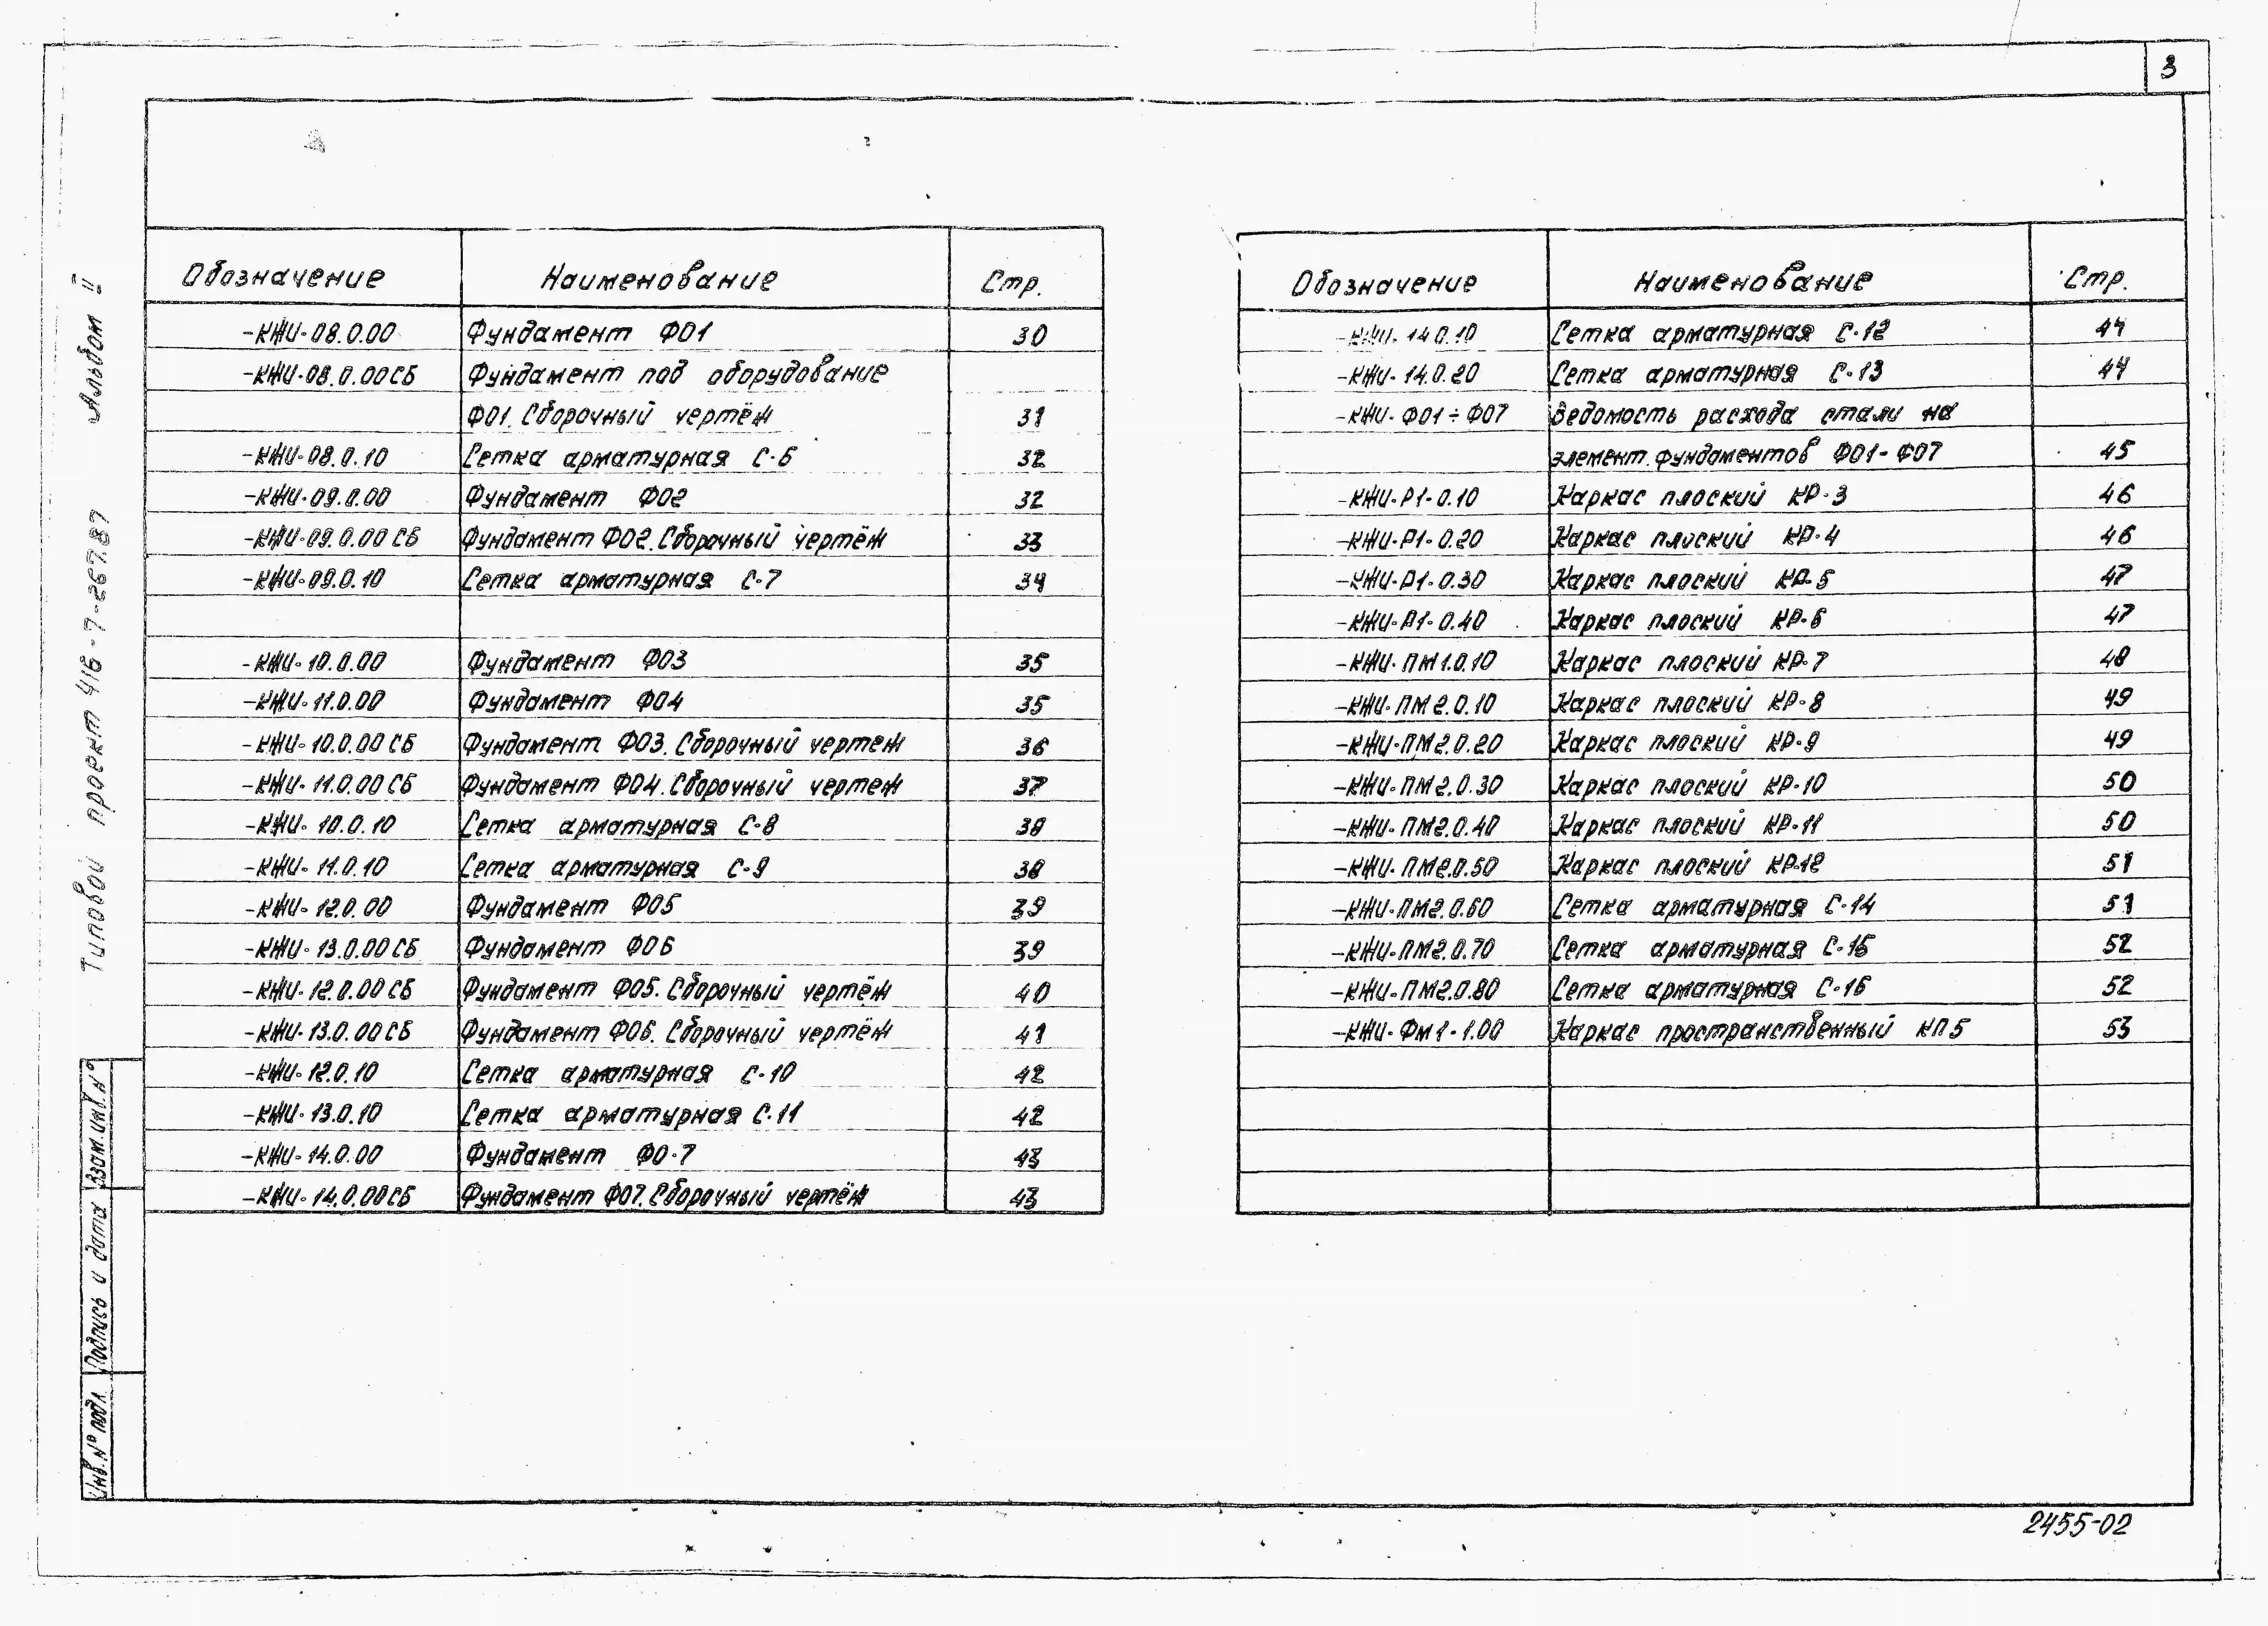 3
Альбом II
Типовой проект 416-7-267.87
Взам.инв.N°
Подпись и дата
Инв.N° подл.
Обозначение Наименование Стр.
-КЖИ-08.0.00 Фундамент ФО1 30
-КЖИ-08.0.00СБ Фундамент под оборудование
ФО1. Сборочный чертёж 31
-КЖИ-08.0.10 Сетка арматурная С-6 32
-КЖИ-09.0.00 Фундамент ФО2 32
-КЖИ-09.0.00СБ Фундамент ФО2. Сборочный чертёж 33
-КЖИ-09.0.10 Сетка арматурная С-7 34
-КЖИ-10.0.00 Фундамент ФО3 35
-КЖИ-11.0.00 Фундамент ФО4 35
-КЖИ-10.0.00СБ Фундамент ФО3. Сборочный чертеж 36
-КЖИ-11.0.00СБ Фундамент ФО4. Сборочный чертеж 37
-КЖИ-10.0.10 Сетка арматурная С-8 38
-КЖИ-11.0.10 Сетка арматурная С-9 38
-КЖИ-12.0.00 Фундамент ФО5 39
-КЖИ-13.0.00СБ Фундамент ФО6 39
-КЖИ-12.0.00СБ Фундамент ФО5. Сборочный чертёж 40
-КЖИ-13.0.00СБ Фундамент ФО6. Сборочный чертёж 41
-КЖИ-12.0.10 Сетка арматурная С-10 42
-КЖИ-13.0.10 Сетка арматурная С-11 42
-КЖИ-14.0.00 Фундамент ФО-7 43
-КЖИ-14.0.00СБ Фундамент ФО7. Сборочный чертёж 43
Обозначение Наименование Стр.
-КЖИ-14.0.10 Сетка арматурная С-12 44
-КЖИ-14.0.20 Сетка арматурная С-13 44
-КЖИ-ФО1÷ФО7 Ведомость расхода стали на
элемент. фундаментов ФО1-ФО7 45
-КЖИ-Р1-0.10 Каркас плоский КР-3 46
-КЖИ-Р1-0.20 Каркас плоский КР-4 46
-КЖИ-Р1-0.30 Каркас плоский КР-5 47
-КЖИ-Р1-0.40 Каркас плоский КР-6 47
-КЖИ-ПМ1.0.10 Каркас плоский КР-7 48
-КЖИ-ПМ2.0.10 Каркас плоский КР-8 49
-КЖИ-ПМ2.0.20 Каркас плоский КР-9 49
-КЖИ-ПМ2.0.30 Каркас плоский КР-10 50
-КЖИ-ПМ2.0.40 Каркас плоский КР-11 50
-КЖИ-ПМ2.0.50 Каркас плоский КР-12 51
-КЖИ-ПМ2.0.60 Сетка арматурная С-14 51
-КЖИ-ПМ2.0.70 Сетка арматурная С-15 52
-КЖИ-ПМ2.0.80 Сетка арматурная С-16 52
-КЖИ-Фм1-1.00 Каркас пространственный КП5 53
2455-02